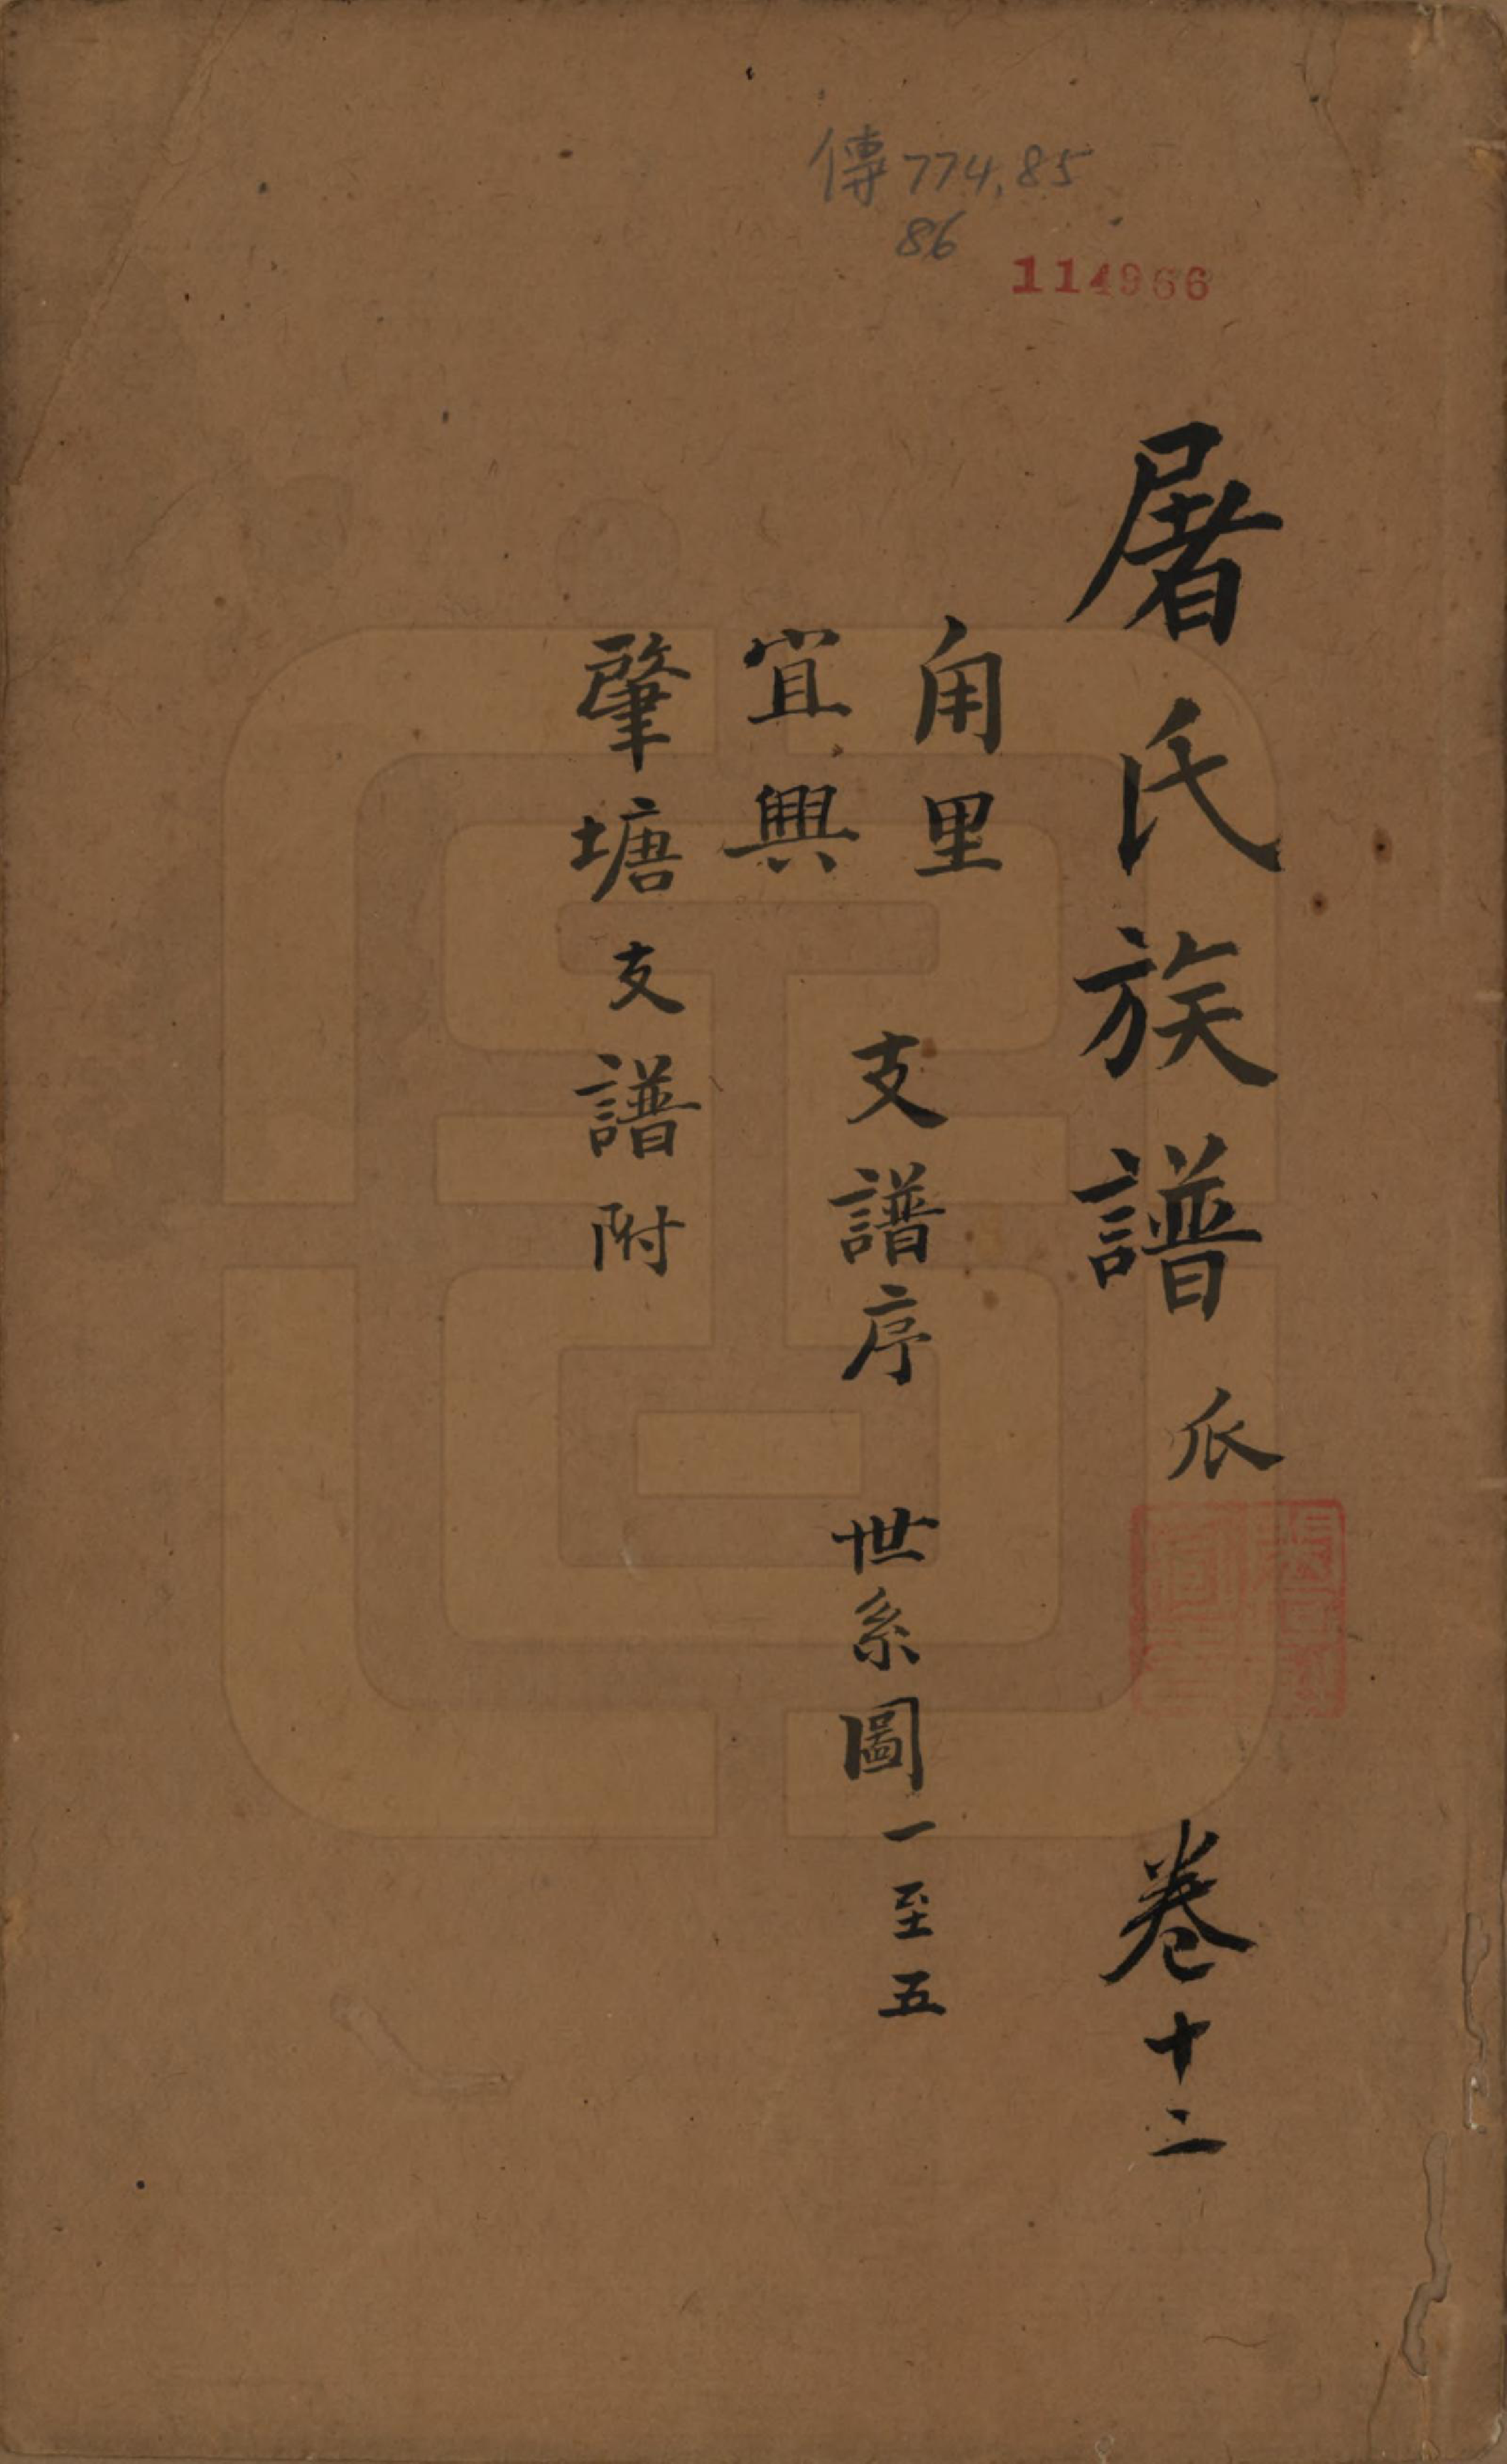 傳774.85
86
114966
屠氏族譜 瓜 卷十二
甪里
宜興
支譜序 世系圖一至五
肇塘支譜附